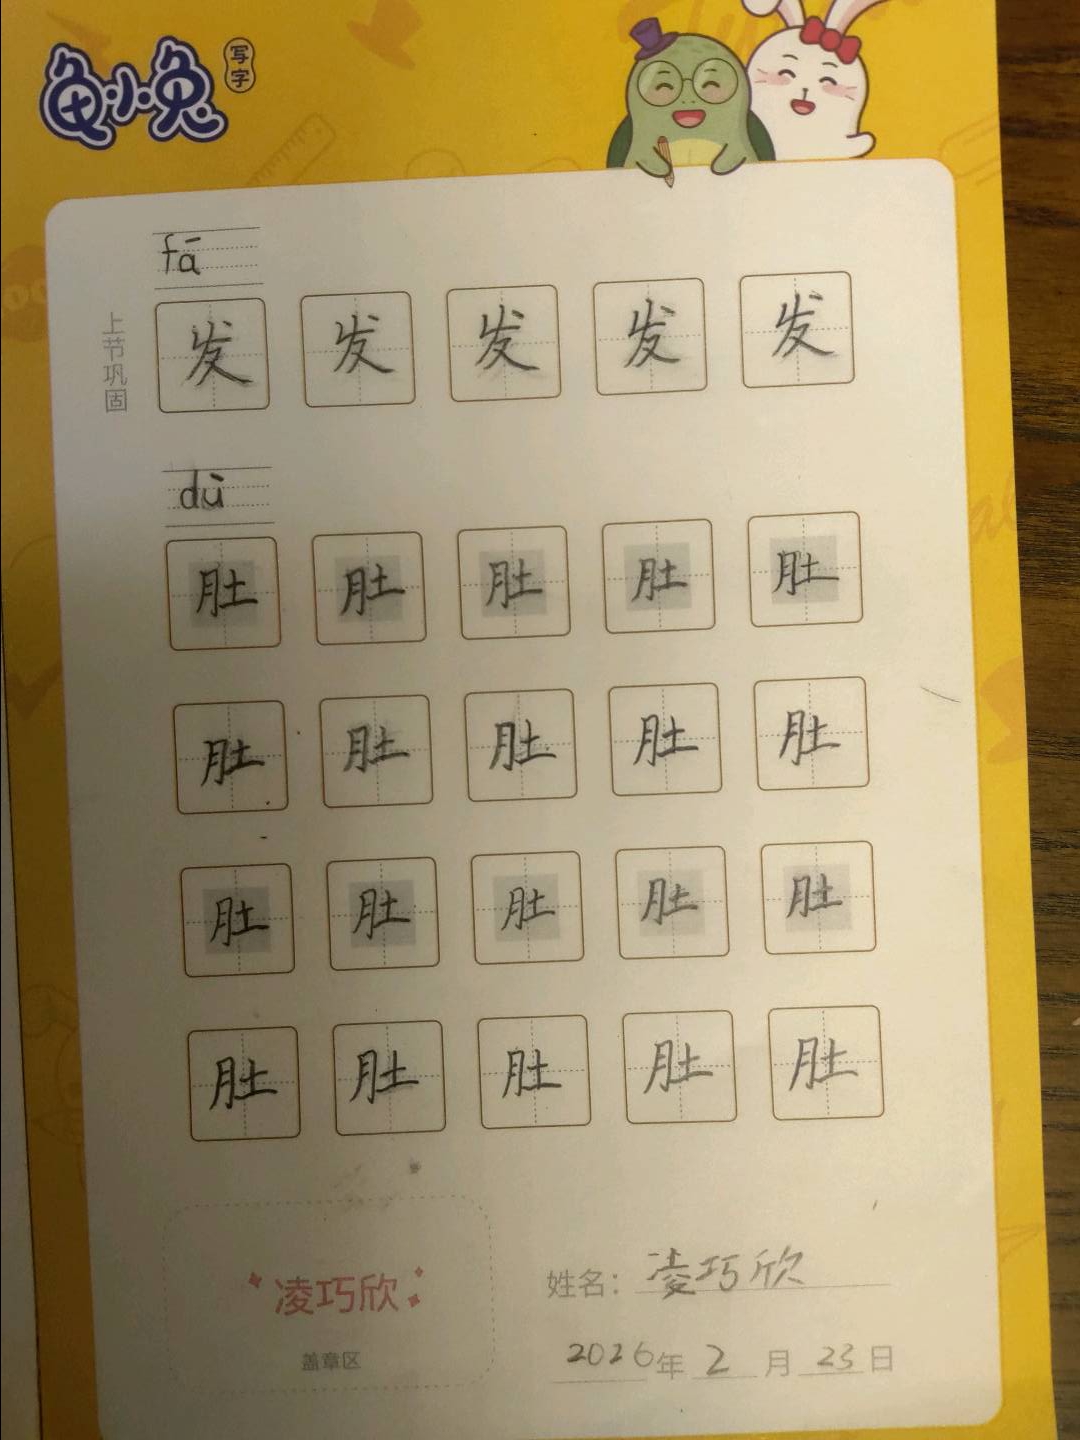 龟小兔写字
fā
上节巩固
发 发 发 发 发
dù
肚 肚 肚 肚 肚
肚 肚 肚 肚 肚
肚 肚 肚 肚 肚
肚 肚 肚 肚 肚
凌巧欣
盖章区
姓名：凌巧欣
2026年2月23日